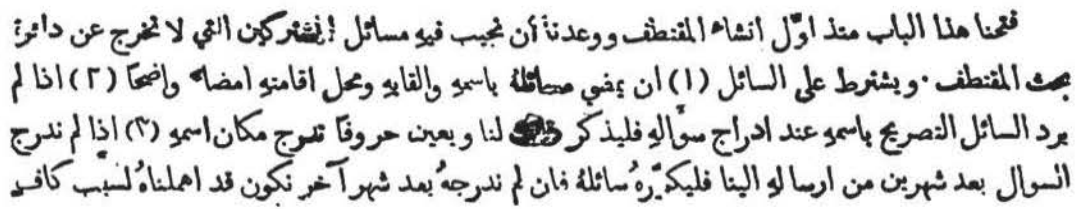 فتحنا هذا الباب منذ اوّل انشاء المقتطف ووعدنا أن نجيب فيهِ مسائل المشتركين التي لا تخرج عن دائرة
بحث المقتطف . ويشترط على السائل (١) ان يمضي مسائلهُ باسمهِ والقابهِ ومحل اقامتهِ امضاء واضحًا (٢) اذا لم
يرد السائل التصريح باسمهِ عند ادراج سوَّالهِ فليذكر لنا ويعين حروفًا تدرج مكان اسمهِ (٣) اذا لم ندرج
السوال بعد شهرين من ارسالهِ الينا فليكرّرهُ سائلهُ فان لم ندرجهُ بعد شهر آخر نكون قد اهملناهُ لسبب كافٍ